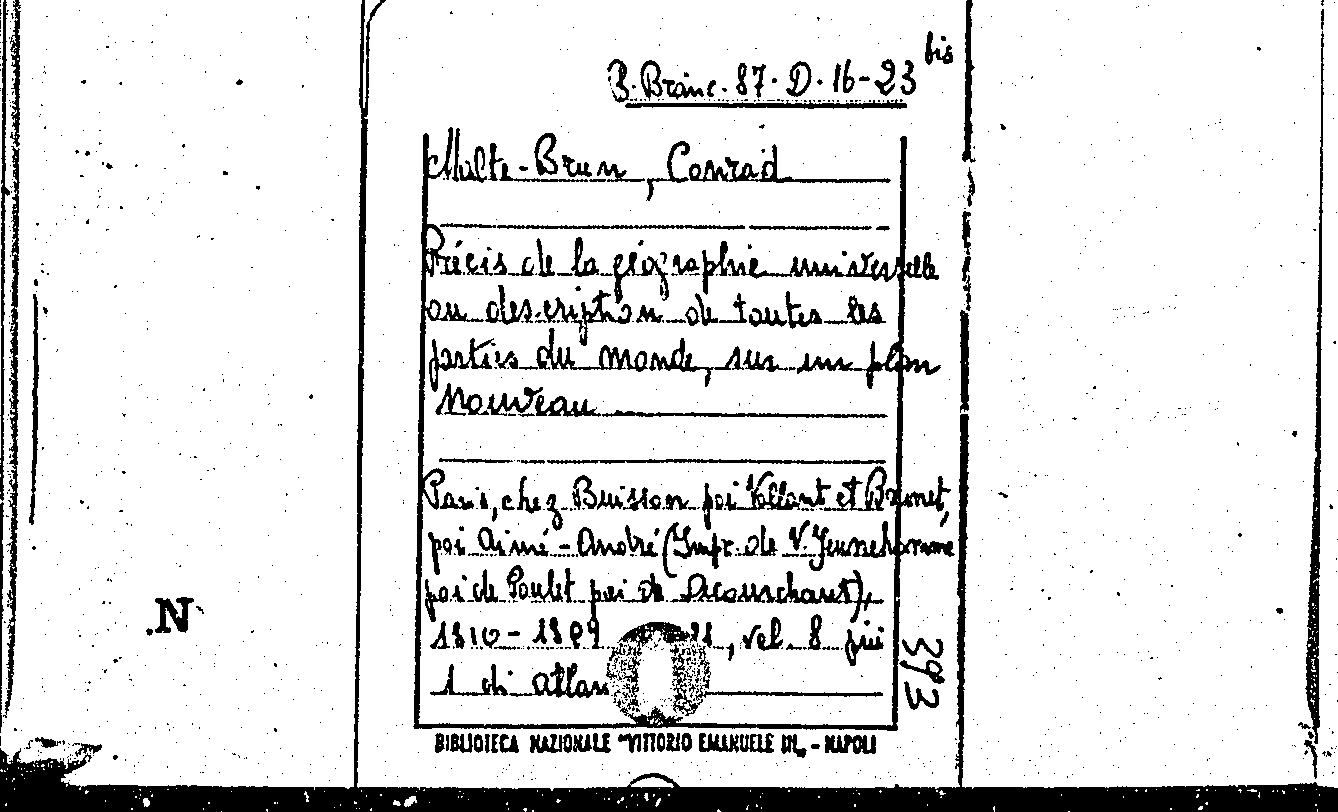 B. Branc. 87. D. 16-23 bis
Malte-Brun, Conrad
Précis de la géographie universelle
ou description de toutes les
parties du monde, sur un plan
nouveau
Paris, chez Buisson poi Vollant et Brunet,
poi Aimé-André (Impr. de V. Jeunehomme
poi de Poulet poi de Decourchant),
1810-18 , vol. 8 più
1 di atlan
393
.N
BIBLIOTECA NAZIONALE "VITTORIO EMANUELE III„ - NAPOLI